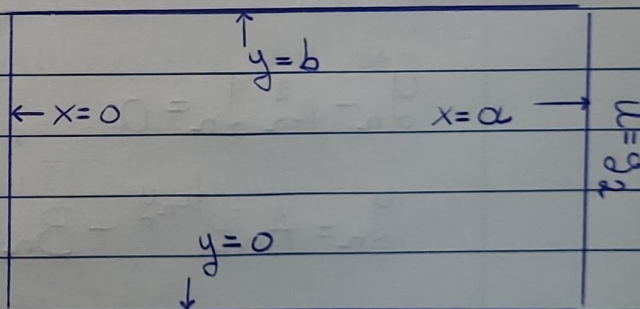 y=b
← x=0
x=a →
u=g₂
y=0